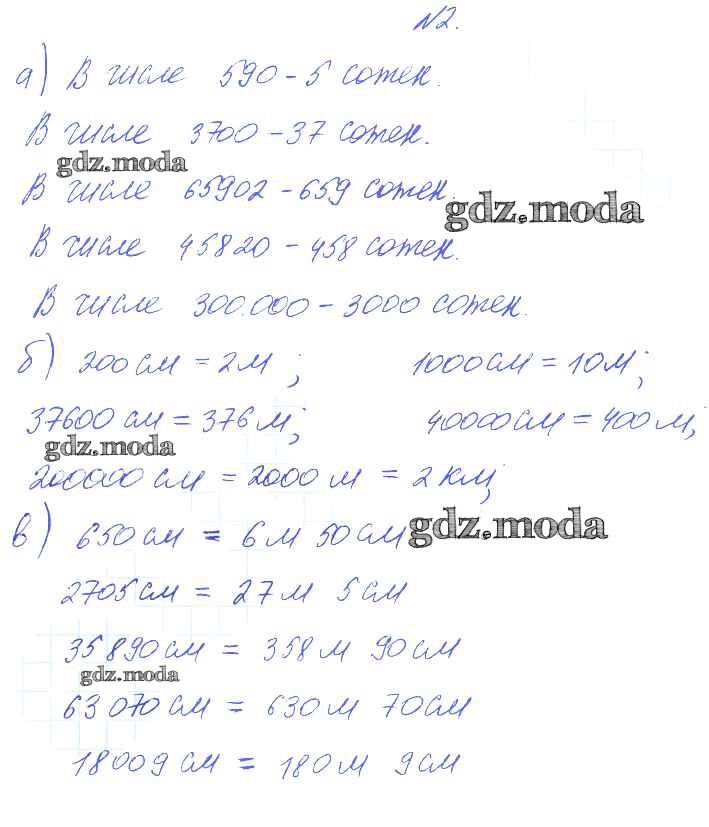 №2.
а) В числе 590 - 5 сотен.
В числе 3700 - 37 сотен.
gdz.moda
В числе 65902 - 659 сотен.
gdz.moda
В числе 45820 - 458 сотен.
В числе 300.000 - 3000 сотен.
б) 200 см = 2 м ; 1000 см = 10 м ;
37600 см = 376 м ; 40000 см = 400 м ;
gdz.moda
200000 см = 2000 м = 2 км ;
в) 650 см = 6 м 50 см
gdz.moda
2705 см = 27 м 5 см
35890 см = 358 м 90 см
gdz.moda
63070 см = 630 м 70 см
18009 см = 180 м 9 см